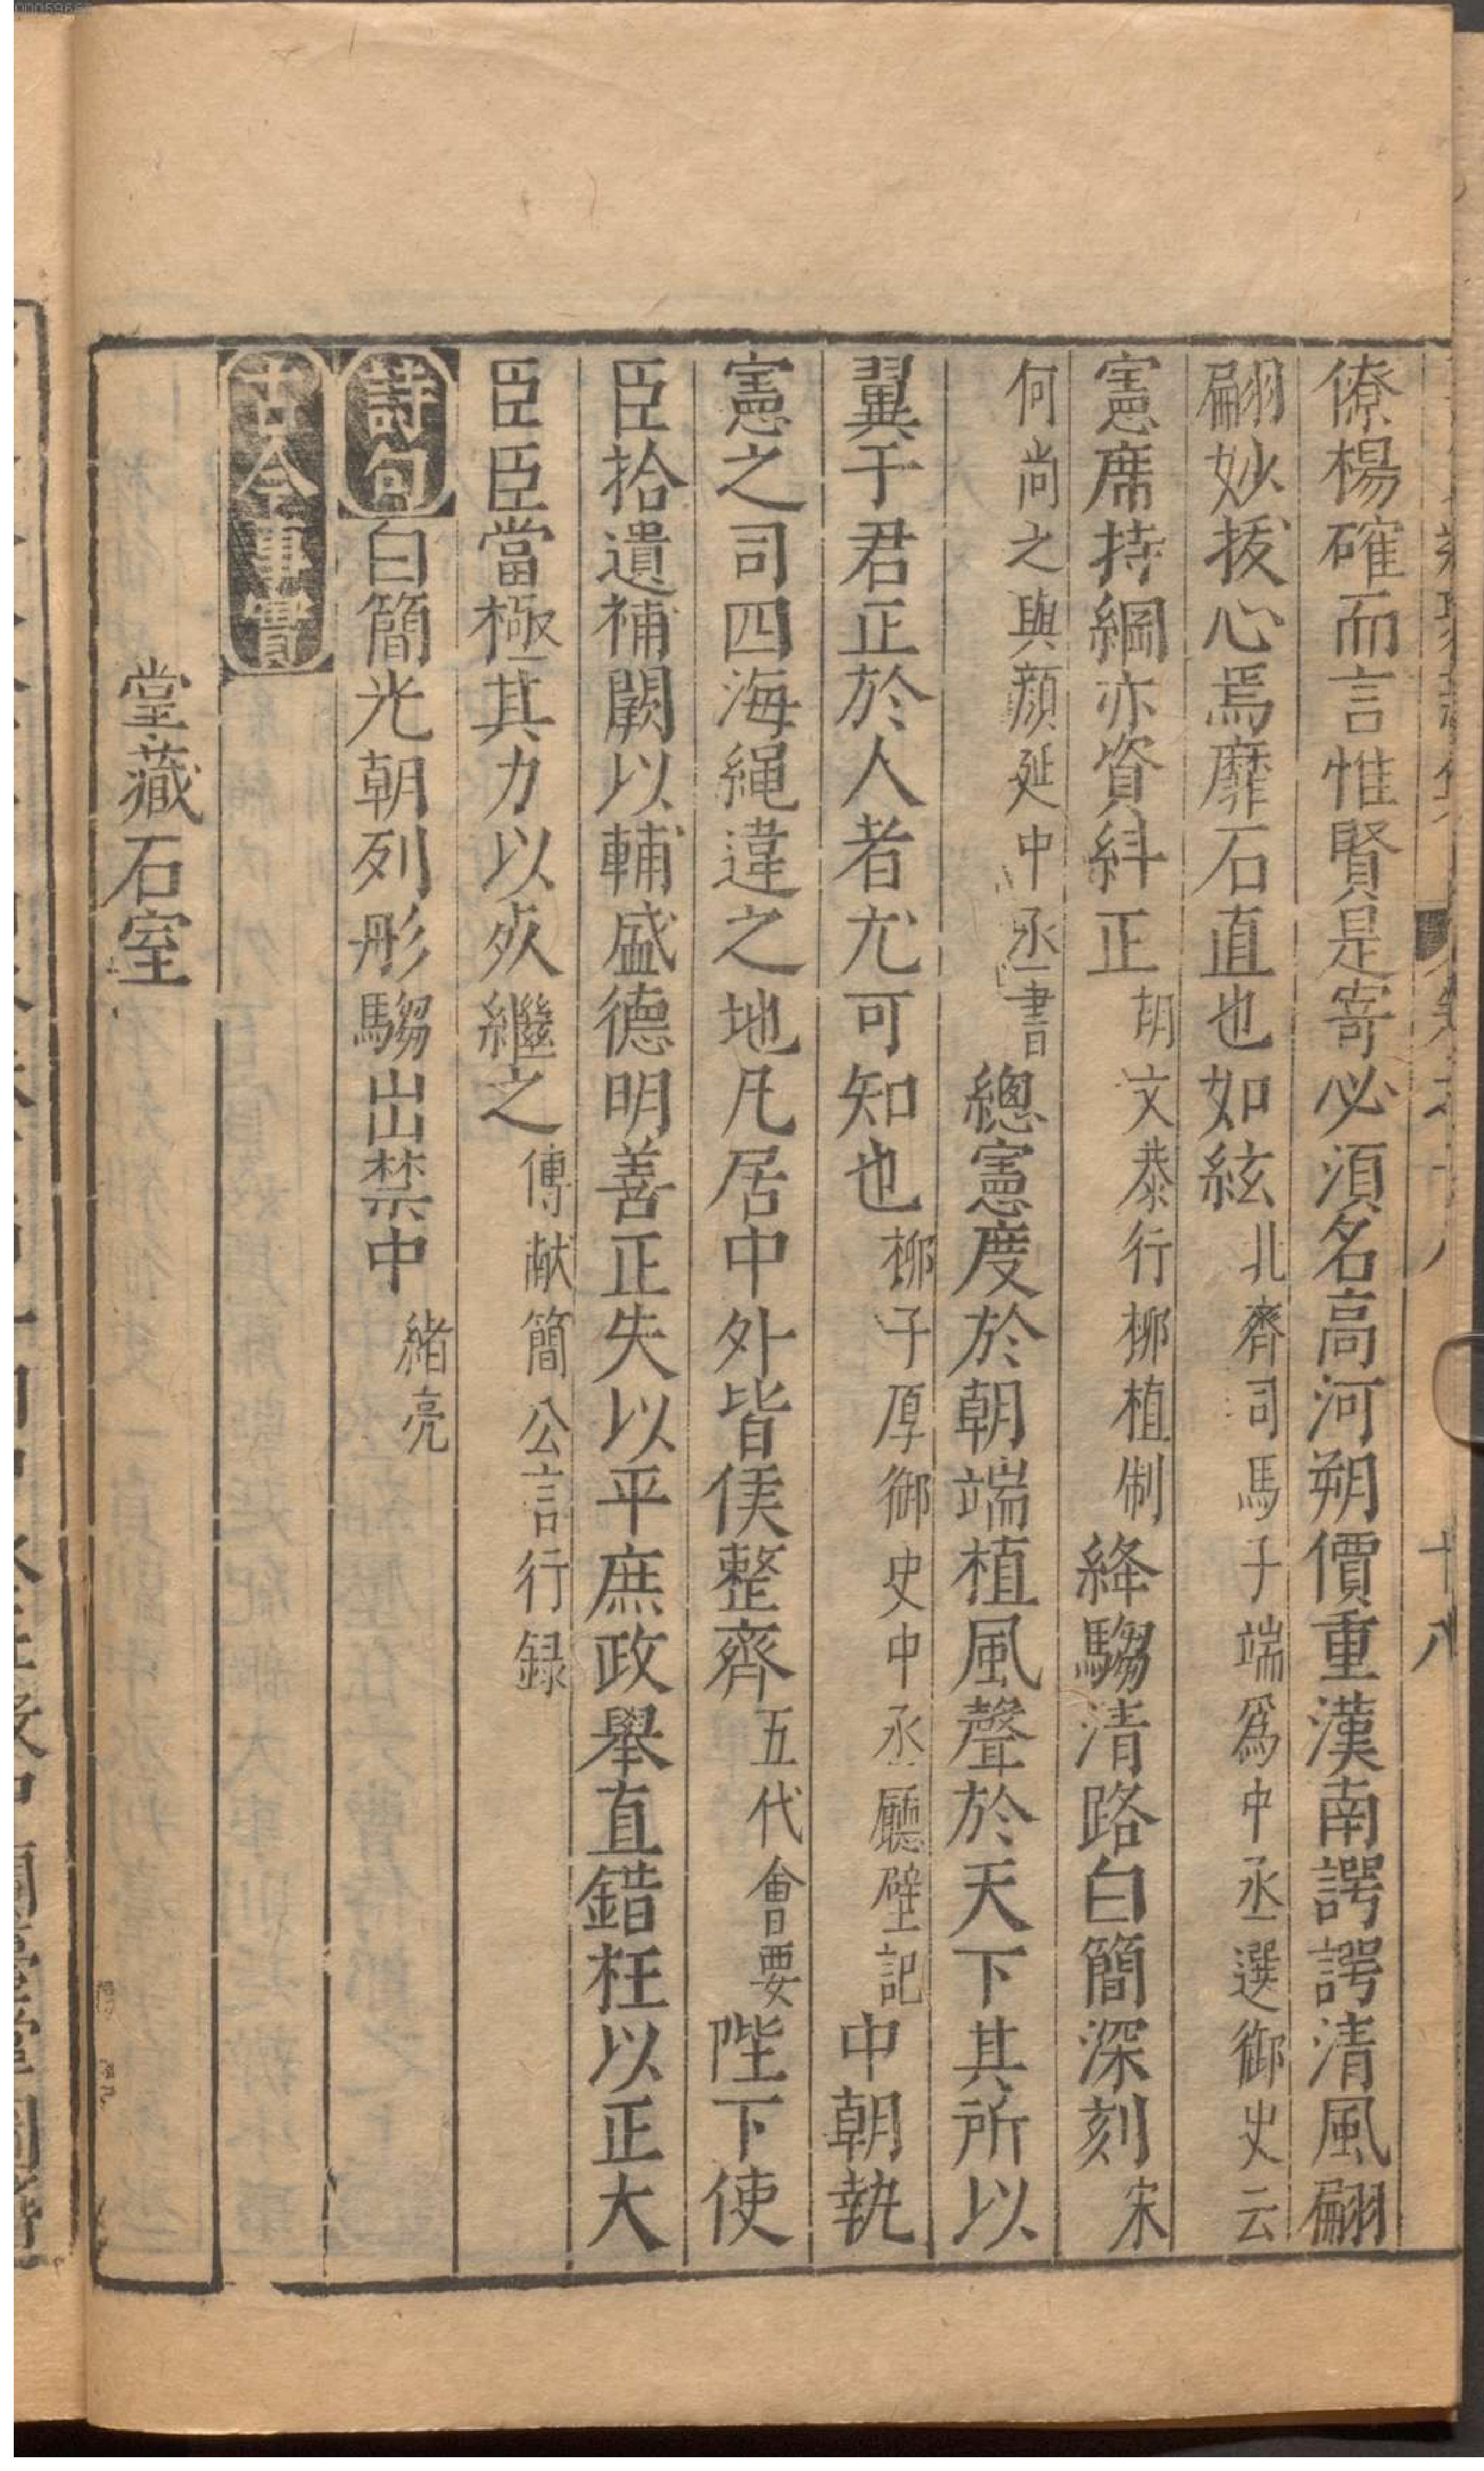 僚楊確而言惟賢是寄必須名高河朔價重漢南諤諤清風翩
翩妙拔心焉靡石直也如絃北齊司馬子端爲中丞選御史云
憲席持綱亦資糾正胡文恭行柳植制絳騶清路白簡深刻宋
何尚之與顔延中丞書總憲度於朝端植風聲於天下其所以
翼于君正於人者尤可知也柳子厚御史中丞廳壁記中朝執
憲之司四海繩違之地凡居中外皆俟整齊五代會要陛下使
臣拾遺補闕以輔盛德明善正失以平庶政舉直錯枉以正大
臣臣當極其力以死繼之傅献簡公言行録
詩句白簡光朝列彤騶出禁中緒亮
古今事實
堂藏石室